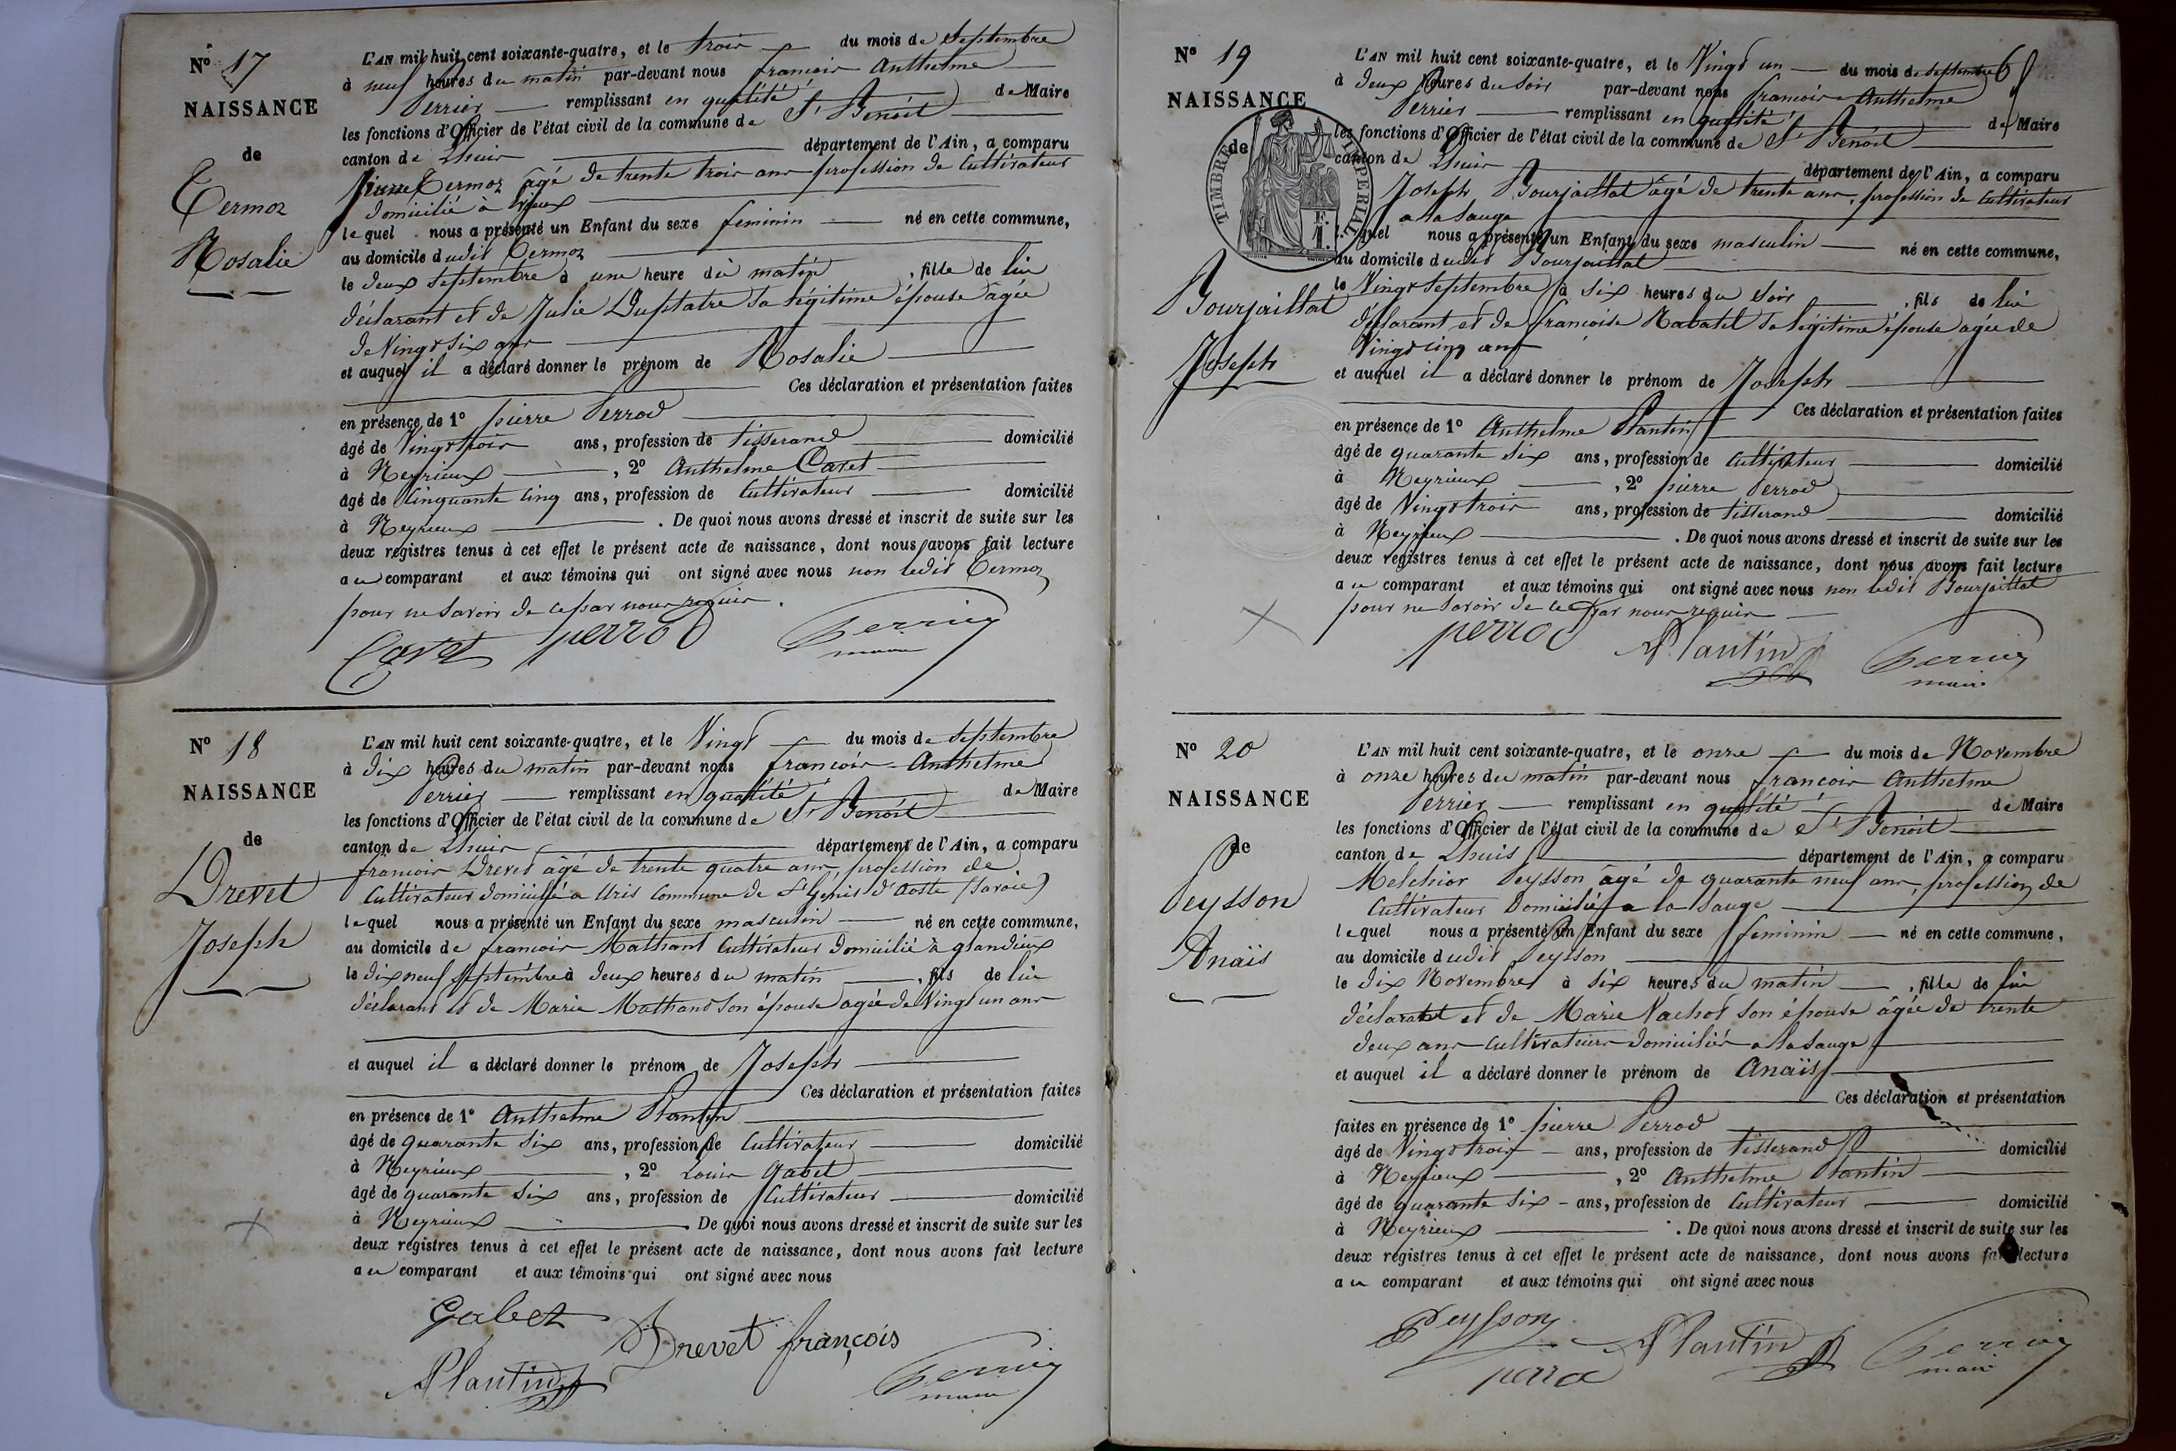 N° 17
NAISSANCE
de
Termoz
Rosalie
L'AN mil huit cent soixante-quatre, et le trois du mois de Septembre
à neuf heures du matin par-devant nous françois Anthelme
Perrier remplissant en qualité de Maire
les fonctions d'Officier de l'état civil de la commune de St Benoit
canton de Lhuis département de l'Ain, a comparu
Termoz âgé de trente trois ans profession de Cultivateur
domicilié à
lequel nous a présenté un Enfant du sexe feminin né en cette commune,
au domicile dudit Termoz
le deux septembre à une heure du matin, fille de lui
déclarant et de Julie Duplatre sa légitime épouse âgée
de Vingt six ans
et auquel il a déclaré donner le prénom de Rosalie
Ces déclaration et présentation faites
en présence de 1° pierre Perrod
âgé de Vingt trois ans, profession de tisserand domicilié
à Neyrieux, 2° Anthelme Cavet
âgé de Cinquante cinq ans, profession de Cultivateur domicilié
à Neyrieux. De quoi nous avons dressé et inscrit de suite sur les
deux registres tenus à cet effet le présent acte de naissance, dont nous avons fait lecture
au comparant et aux témoins qui ont signé avec nous non ledit Termoz
pour ne savoir de ce par nous requis.
Cavet perrod Perrier
maire
N° 18
NAISSANCE
de
Drevet
Joseph
L'AN mil huit cent soixante-quatre, et le Vingt du mois de septembre
à dix heures du matin par-devant nous françois Anthelme
Perrier remplissant en qualité de Maire
les fonctions d'Officier de l'état civil de la commune de St Benoit
canton de Lhuis département de l'Ain, a comparu
françois Drevet âgé de trente quatre ans, profession de
Cultivateur domicilié à Uris commune de St Genis d'Aoste (Savoie)
lequel nous a présenté un Enfant du sexe masculin né en cette commune,
au domicile de françois Mathant Cultivateur domicilié à glandieux
le dix neuf septembre à deux heures du matin, fils de lui
déclarant et de Marie Mathand son épouse agée de Vingt un ans
et auquel il a déclaré donner le prénom de Joseph
Ces déclaration et présentation faites
en présence de 1° Anthelme Plantin
âgé de quarante six ans, profession de Cultivateur domicilié
à Neyrieux, 2° Louis Gabet
âgé de quarante six ans, profession de Cultivateur domicilié
à Neyrieux. De quoi nous avons dressé et inscrit de suite sur les
deux registres tenus à cet effet le présent acte de naissance, dont nous avons fait lecture
au comparant et aux témoins qui ont signé avec nous
Gabet
Drevet françois
Plantin Perrier
maire
N° 19
NAISSANCE
de
TIMBRE IMPERIAL
Bourjaillat
Joseph
L'AN mil huit cent soixante-quatre, et le Vingt un du mois de septembre
à deux heures du soir par-devant nous françois Anthelme
Perrier remplissant en qualité de Maire
les fonctions d'Officier de l'état civil de la commune de St Benoit
canton de Lhuis département de l'Ain, a comparu
Joseph Bourjaillat âgé de trente ans, profession de Cultivateur
a la sauge
lequel nous a présenté un Enfant du sexe masculin né en cette commune,
au domicile dudit Bourjaillat
le Vingt septembre à six heures du soir, fils de lui
déclarant et de françoise Rabatel sa légitime épouse agée de
Vingt cinq ans
et auquel il a déclaré donner le prénom de Joseph
Ces déclaration et présentation faites
en présence de 1° Anthelme Plantin
âgé de quarante six ans, profession de Cultivateur domicilié
à Neyrieux, 2° pierre Perrod
âgé de Vingt trois ans, profession de tisserand domicilié
à Neyrieux. De quoi nous avons dressé et inscrit de suite sur les
deux registres tenus à cet effet le présent acte de naissance, dont nous avons fait lecture
au comparant et aux témoins qui ont signé avec nous non ledit Bourjaillat
pour ne savoir de ce par nous requis
perrod Plantin Perrier
maire
N° 20
NAISSANCE
de
Peysson
Anaïs
L'AN mil huit cent soixante-quatre, et le onze du mois de Novembre
à onze heures du matin par-devant nous françois Anthelme
Perrier remplissant en qualité de Maire
les fonctions d'Officier de l'état civil de la commune de St Benoit
canton de Lhuis département de l'Ain, a comparu
Melchior Peysson âgé de quarante neuf ans, profession de
Cultivateur Domicilié a la Sauge
lequel nous a présenté un Enfant du sexe feminin né en cette commune,
au domicile dudit Peysson
le dix Novembre à six heures du matin, fille de lui
déclarant et de Marie Vachot son épouse âgée de trente
deux ans Cultivateurs domiciliés a la Sauge
et auquel il a déclaré donner le prénom de Anaïs
Ces déclaration et présentation
faites en présence de 1° pierre Perrod
âgé de Vingt trois ans, profession de tisserand domicilié
à Neyrieux, 2° Anthelme Plantin
âgé de quarante six ans, profession de Cultivateur domicilié
à Neyrieux. De quoi nous avons dressé et inscrit de suite sur les
deux registres tenus à cet effet le présent acte de naissance, dont nous avons fait lecture
au comparant et aux témoins qui ont signé avec nous
Peysson Plantin Perrier
maire